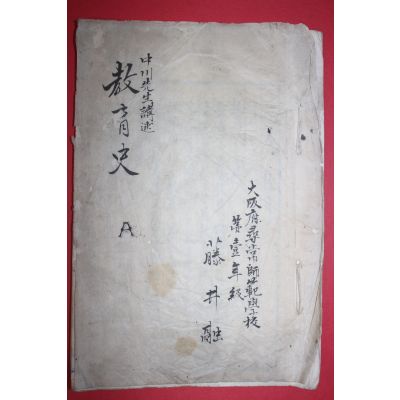 大阪府尋常師範學校
第壹年級
藤井融
中川先生講述
教育史
A